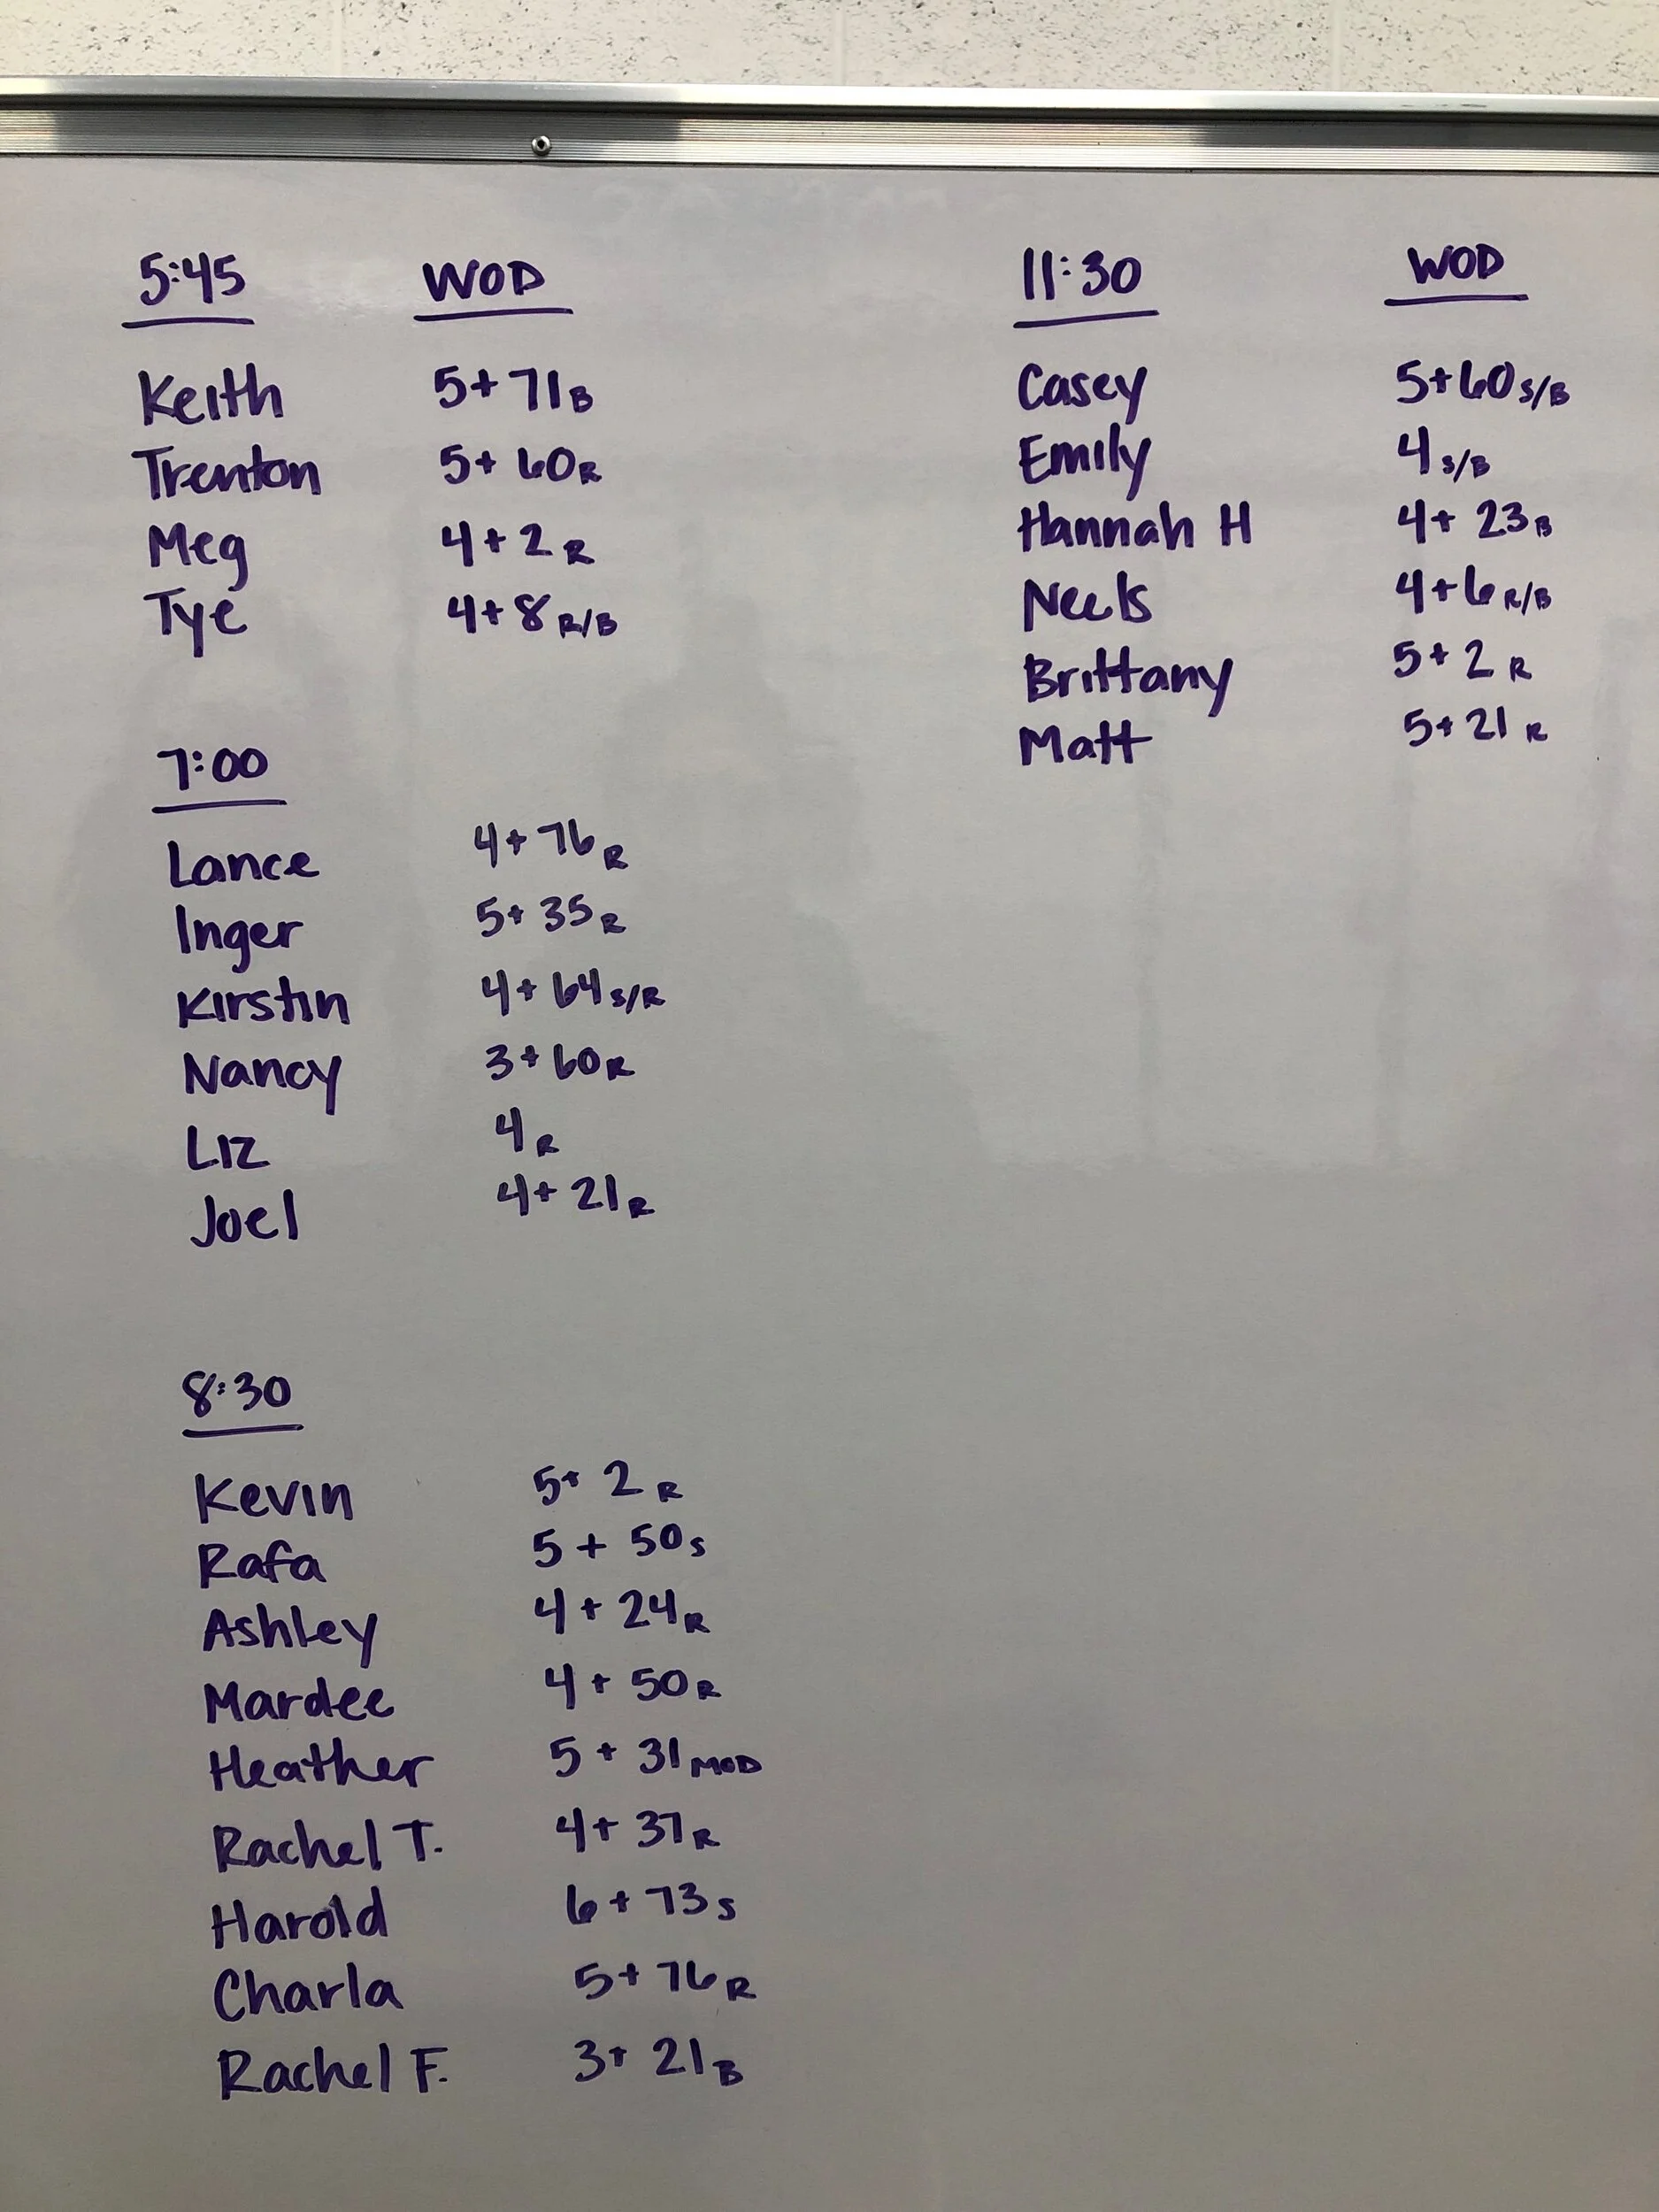 5:45 WOD
Keith 5+71 B
Trenton 5+60 R
Meg 4+2 R
Tye 4+8 R/B
7:00
Lance 4+76 R
Inger 5+35 R
Kirstin 4+64 S/R
Nancy 3+60 R
Liz 4 R
Joel 4+21 R
8:30
Kevin 5+2 R
Rafa 5+50 S
Ashley 4+24 R
Mardee 4+50 R
Heather 5+31 MOD
Rachel T. 4+37 R
Harold 6+73 S
Charla 5+76 R
Rachel F. 3+21 B
11:30 WOD
Casey 5+60 S/B
Emily 4 S/B
Hannah H 4+23 B
Neels 4+6 R/B
Brittany 5+2 R
Matt 5+21 R